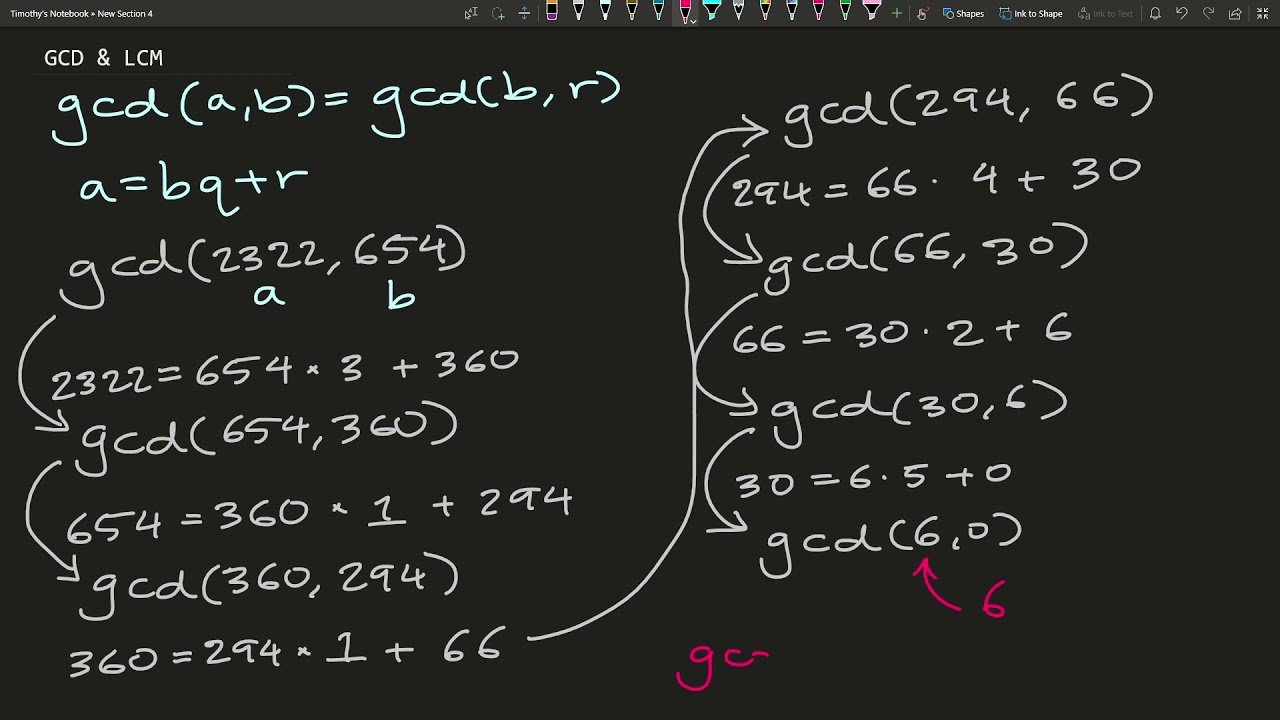 Timothy's Notebook » New Section 4
Shapes
Ink to Shape
Ink to Text
GCD & LCM
gcd(a,b)= gcd(b,r)
a=bq+r
gcd(2322,654)
a b
2322=654×3 +360
gcd(654,360)
654=360×1 +294
gcd(360,294)
360=294×1 + 66
gcd(294, 66)
294=66· 4+ 30
gcd(66,30)
66=30·2+ 6
gcd(30,6)
30=6·5+0
gcd(6,0)
6
gc